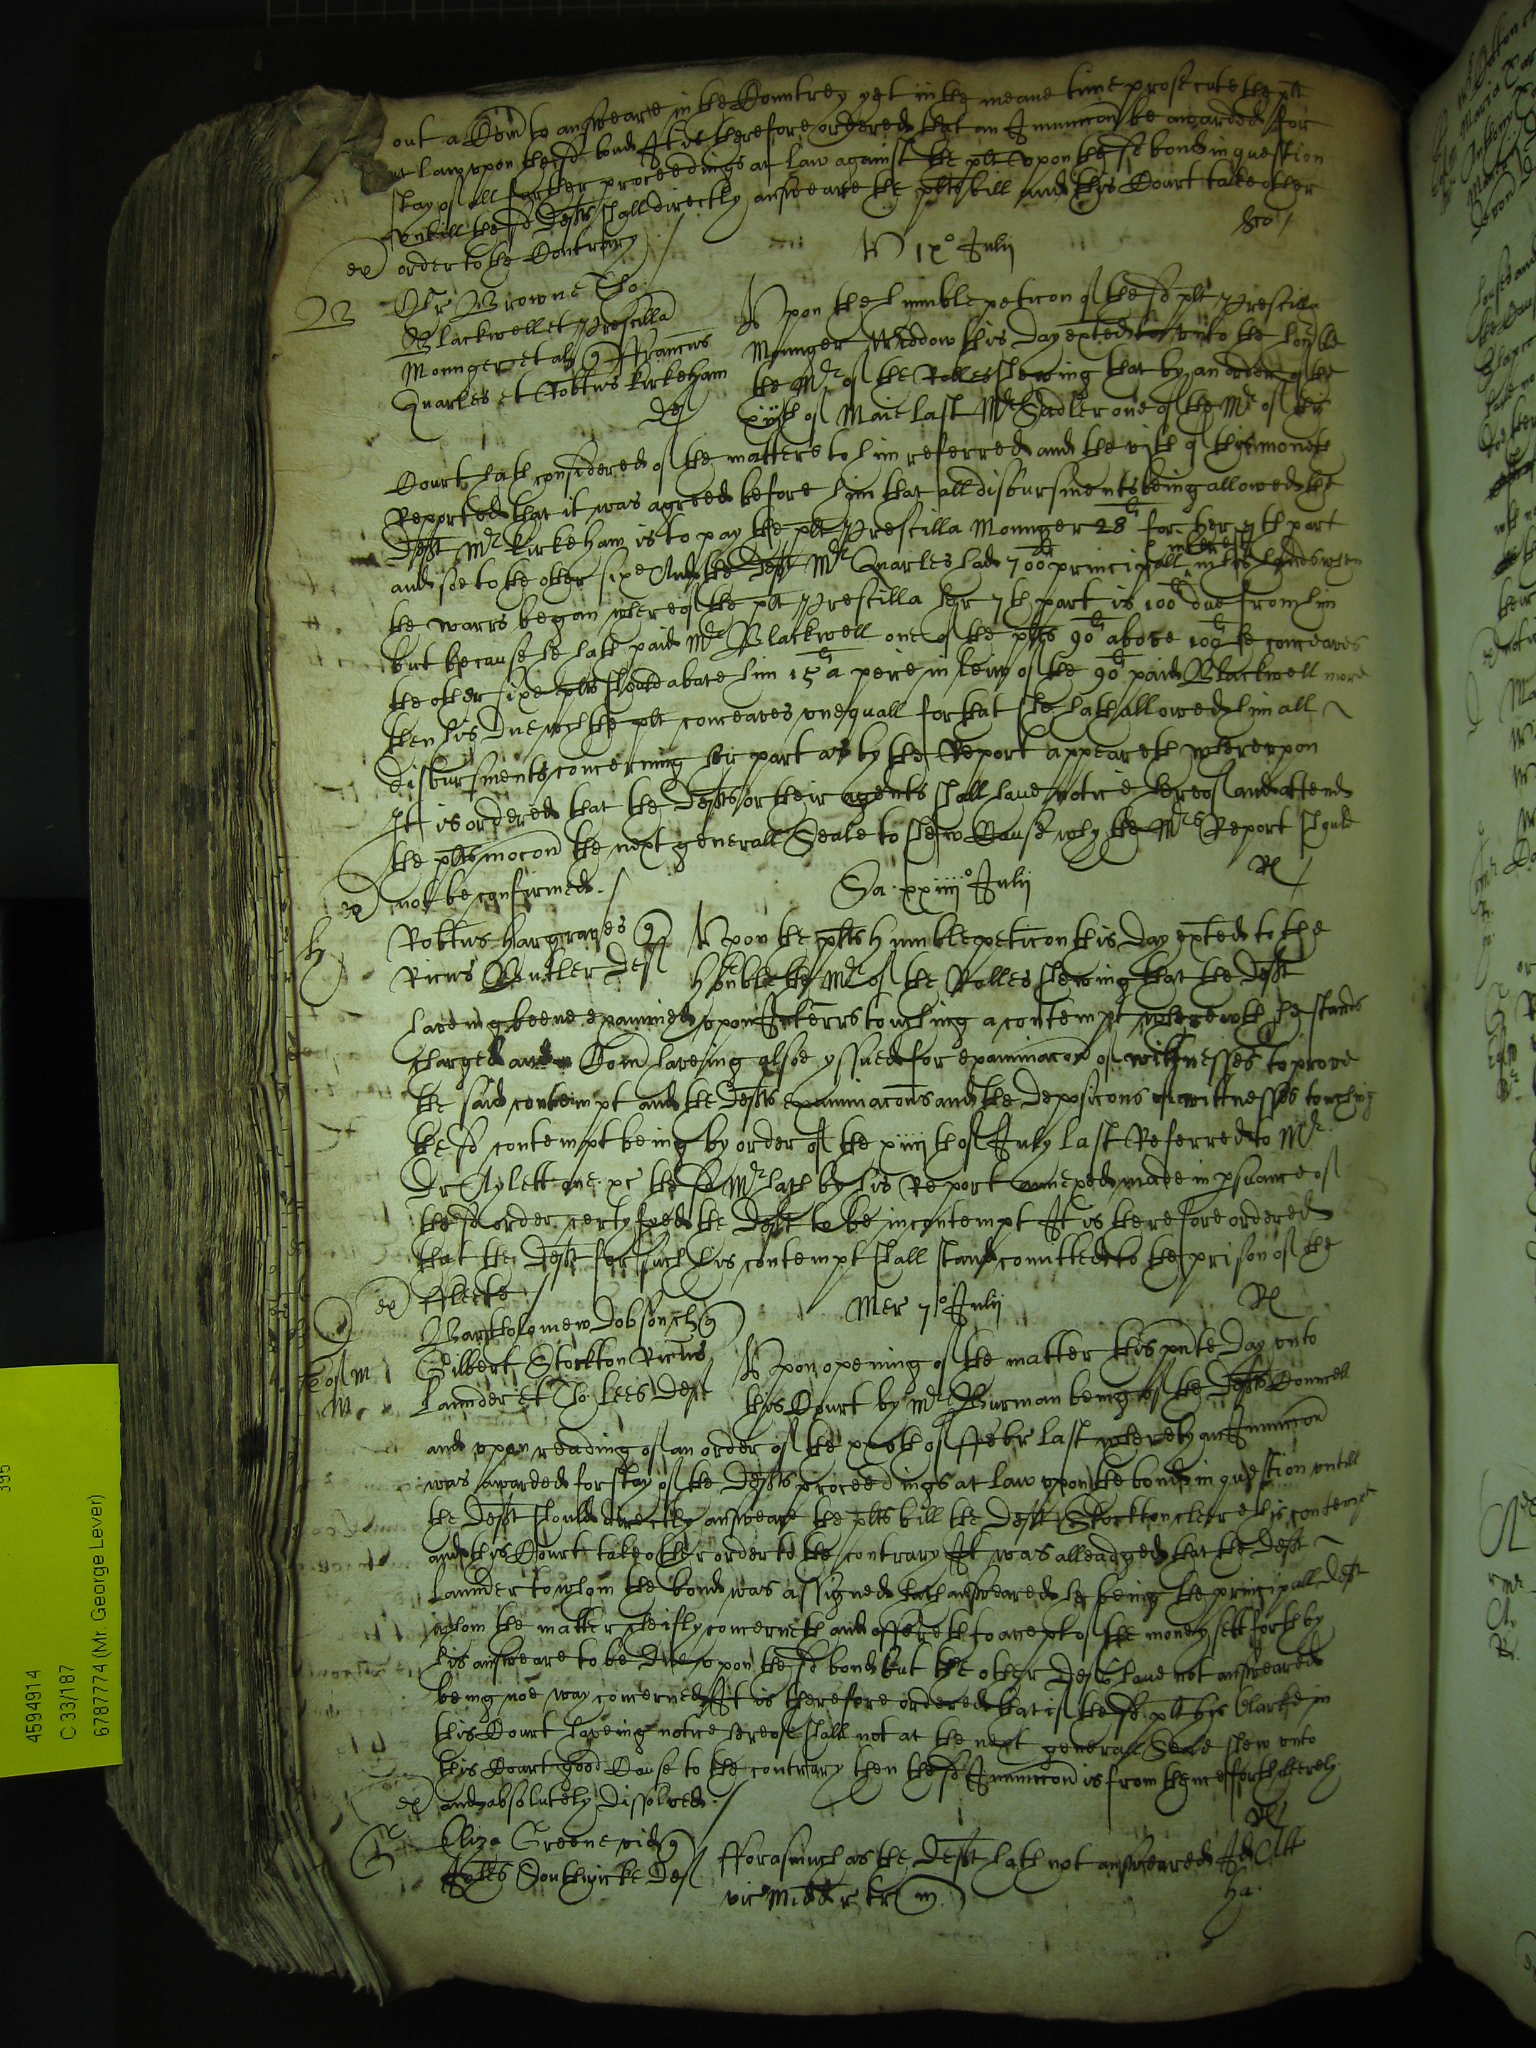 out a Com̄ to answeare in the Countrey yet in the meane time prosecute the plt
at Law upon the sd bond It is therefore ordered that an Iniunccon be awarded for
stay of all further proceedings at law against the plt upon the sd bond in question
untill the sd Deft shall directly answeare the plts bill and this Court take other
order to the Contrary
ex
V ix° Julij
B
Chr Browne Tho
Blackwell et Prescilla
Mounger et al q Franciscus
Quarles et Robtus Kirkeham
def
Upon the humble peticon of the sd plt Prescilla
Mounger Widdow this day exted unto the honble
the Mr of the Rolles shewing that by an order of the
xijth of Maie last Mr Sadler one of the Mrs of this
Court hath considered of the matters to him referred and the vith of this moneth
Reported that it was agreed before him that all disbursments being allowed the
Deft Mr Kirkeham is to pay the plt Prescilla Mounger 28l for her 7th part
and soe to the other sixe And the Deft Mr Quarles had 700l principall interest in his hands when
the warrs began whereof the plt Prescilla her 7th part is 100l due from him
but because he hath paid Mr Blackwell one of the plts 90l above 100l he conceaves
the other sixe plts should abate him 15l a peice in leiw of the 90l paid Blackwell more
then his due wch the plt conceaves unequall for that she hath allowed him all
disbursments concerning her part as by the Report appeareth whereupon
It is ordered that the Defts or their agents shall have notice hereof and attend
the plts mocon the next generall Seale to shew Cause why the Mrs Report should
not be confirmed
ex
Rl
Sa xxiiij° Julij
H
Robtus Hargraves q
Ricus Butler Def
Upon the plts humble peticon this day exted to the
Honble the Mr of the Rolles shewing that the Deft
haveing beene examined upon Interrs touching a contempt wherewth he stands
charged and a Com̄ haveing alsoe yssued for examinacon of wittnesses to prove
the said contempt and the Defts examinacons and the deposicons of wittnesses touching
the sd contempt being by order of the xiiijth of July last Referred to Mr
Dr Aylett one &c the sd Mr hath by his Report annexed made in psuance of
the sd order certyfyed the Deft to be in contempt It is therefore ordered
that the Deft for such his contempt shall stand comitted to the prison of the
ffleete
ex
Rl
Mer 7° Julij
Bartholomew Dobson q
Gilbert Stockton Ricus
Launder et Jo Lees Deft
Upon opening of the matter this pnte day unto
this Court by Mr Burman being of the Defts Councell
and upon reading of an order of the xxth of ffebr last whereby an Iniunccon
was awarded for stay of the Defts proceedings at law upon the bond in question untill
the Deft should directly answeare the plts bill the Deft Stockton cleare his contempt
and this Court take other order to the contrary It was alleadged that the Deft
Launder to whom the bond was assigned hath answeared he being the principall Deft
whom the matter cheifly concerneth and offereth to accept of the money sett forth by
his answeare to be due upon the sd bond but the other Defts have not answeared
being noe way concerned It is therefore ordered that if the sd plt his Clarke in
this Court haveing notice hereof shall not at the next generall Seale shew unto
this Court good Cause to the contrary then the sd Iniunccon is from thenceforth utterly
and absolutely dissolved
ex
Rl
G
Eliza Greene vid q
Southwicke Def
fforasmuch as the Deft hath not answeared Id Att
vic Midd r tr m
Ha
4594914
C 33/187
6787774 (Mr. George Lever)